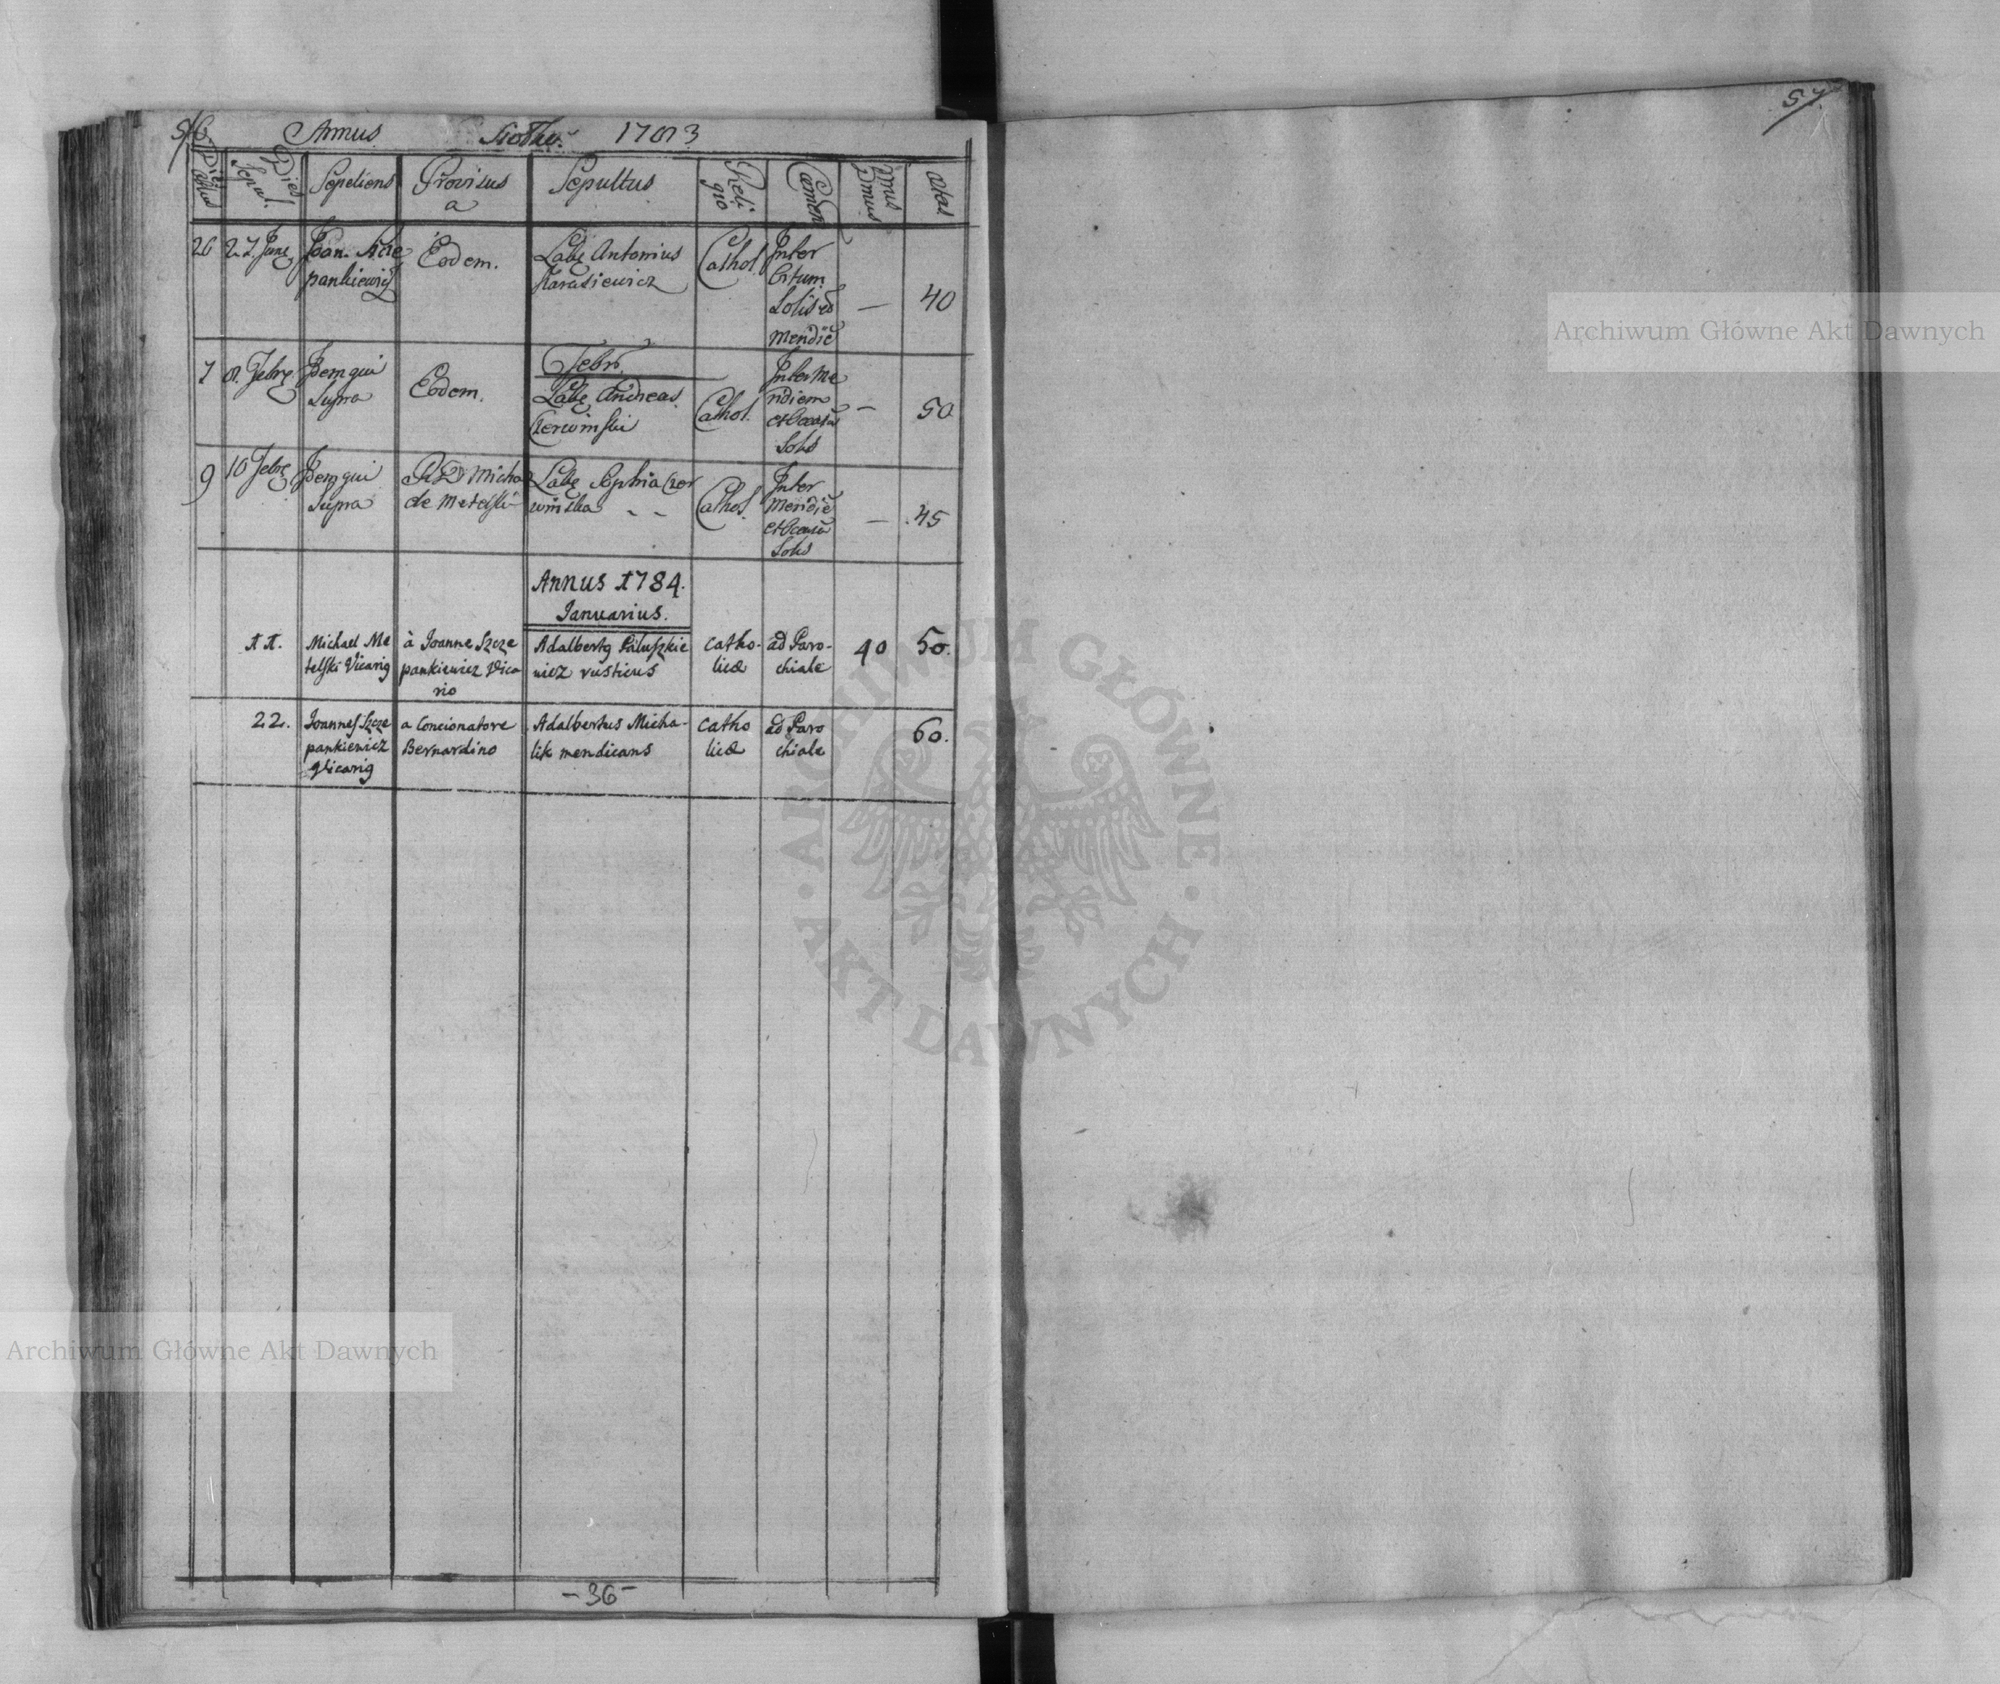 56.
Annus 1783
Sepeliens Provisus a Sepultus Religio Cæmen Nrus Dmus ætas
26 27. Janę Joan. Szcze
pankiewicz
Eodem.
Labę Antonius
Karasiewicz
Cathol.
Inter
Ortum
Solis et
Meridiē
—
40
Febrii
7 8. Febrę Idem qui
Supra
Eodem.
Labę Andreas
Czerwinski
Cathol.
Inter Me
ridiem
et Occasū
Solis
—
50
9 10 Febrę Idem qui
Supra
RD Micha
ele Metelski
Labę Sophia Czer
winska - -
Cathol.
Inter
Meridiē
et Occasū
Solis
—
45
Annus 1784.
Januarius.
11. Michael Me
telski Vicariꝰ
à Joanne Szcze
pankiewicz Vica
rio
Adalbertꝰ Paluszkie
wicz rusticus
catho-
licæ
ad Paro-
chiale
40
50.
22. Joannes Szcze
pankiewicz
Vicariꝰ
a Concionatore
Bernardino
Adalbertus Micha-
lik mendicans
catho
licæ
ad Paro
chiale
60.
-36-
57.
Archiwum Główne Akt Dawnych
Archiwum Główne Akt Dawnych
· ARCHIWUM GŁÓWNE ·
AKT DAWNYCH